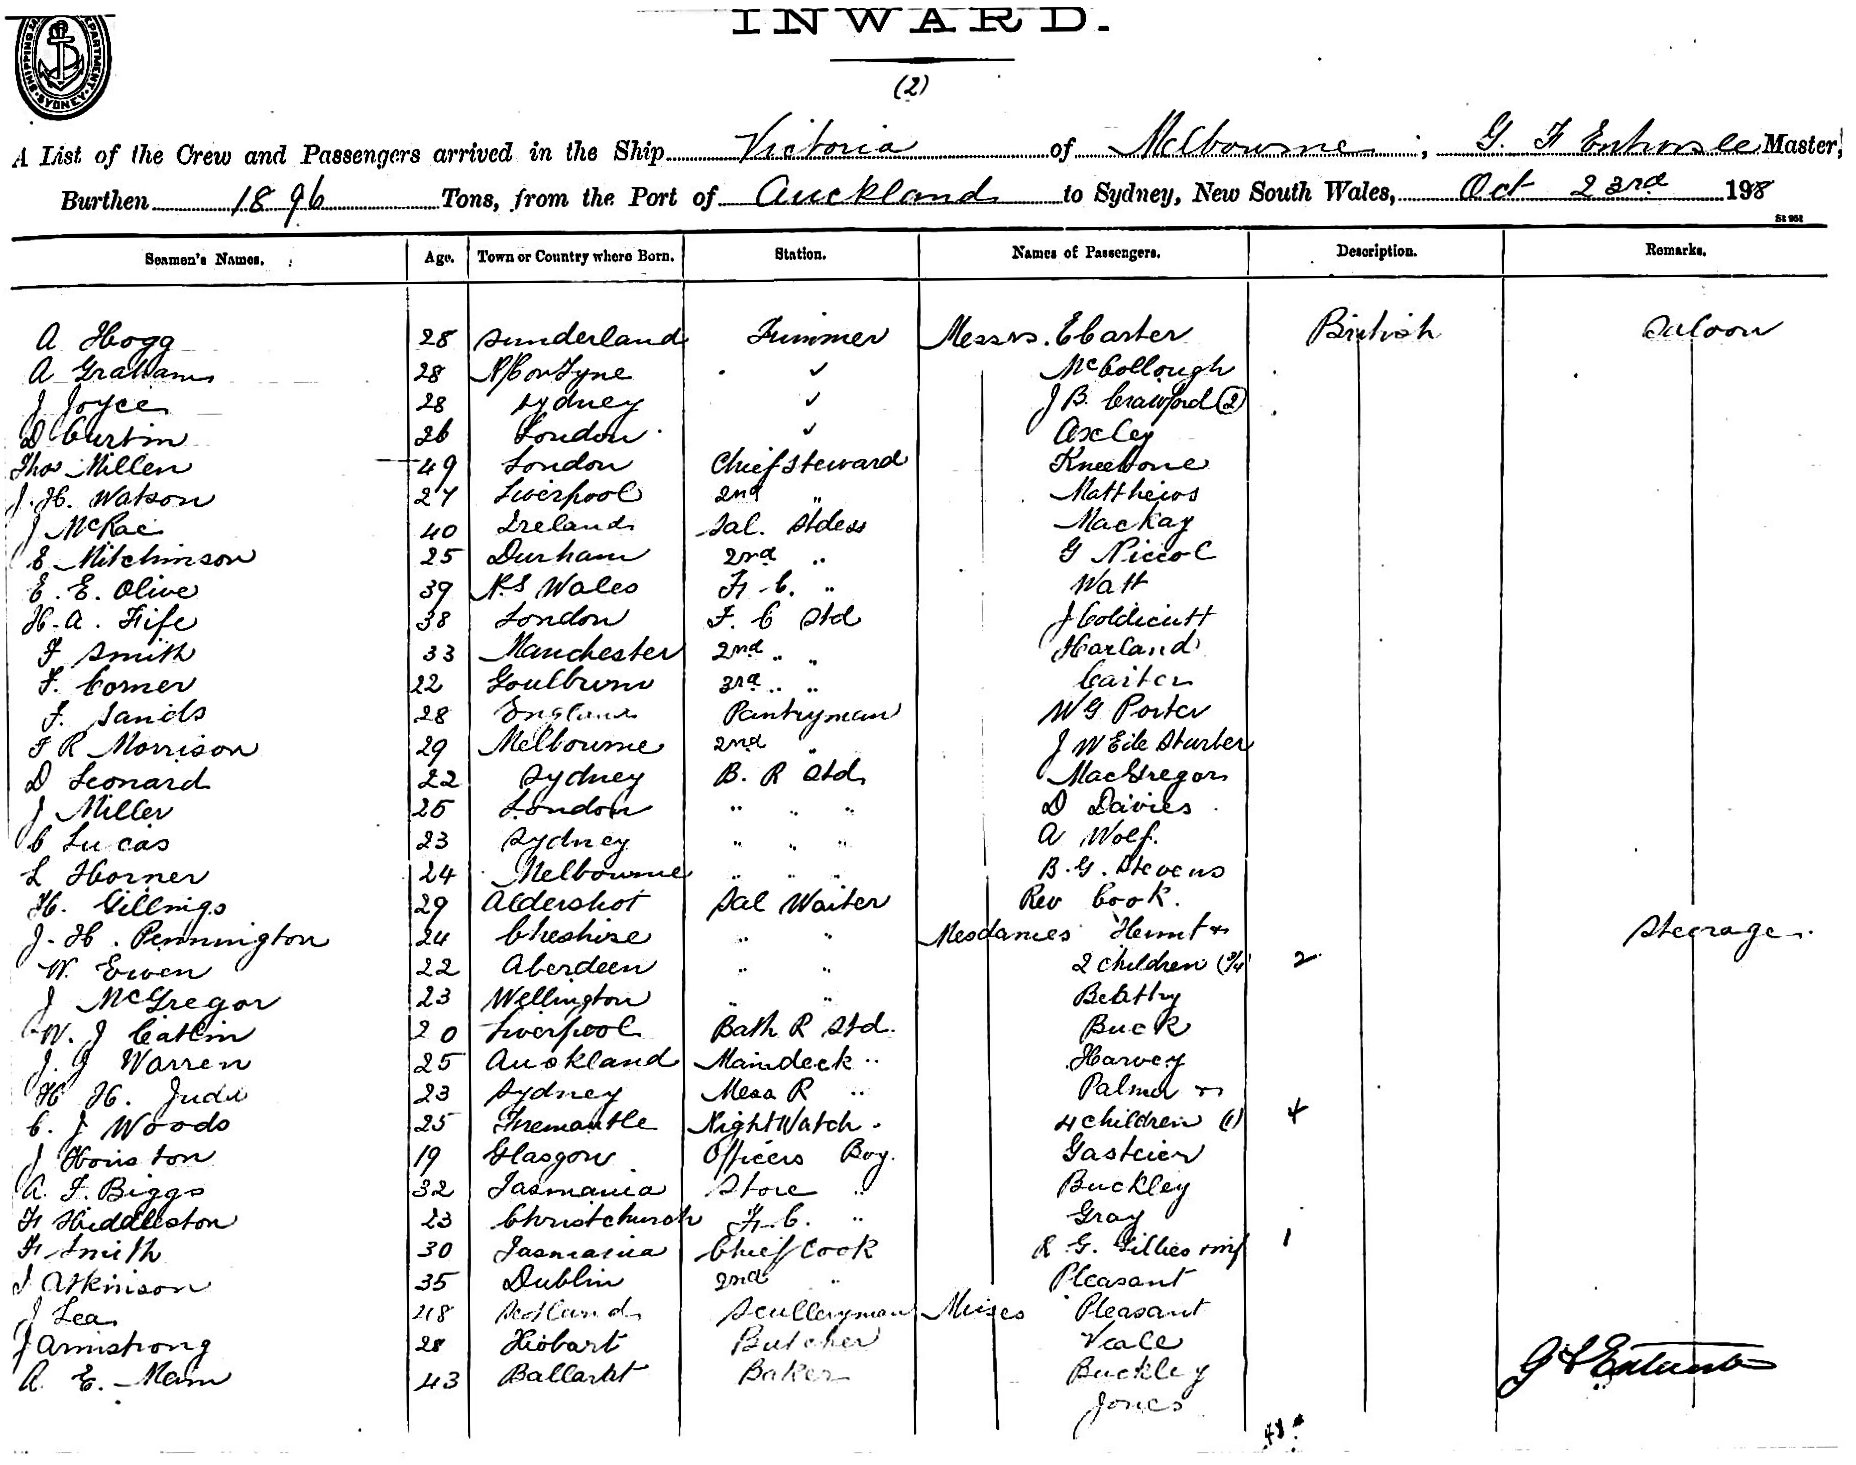 INWARD.
(2)
A List of the Crew and Passengers arrived in the Ship Victoria of Melbourne; G. F Entwisle Master,
Burthen 1896 Tons, from the Port of Auckland to Sydney, New South Wales, Oct 23rd 198
Seamen's Names. Age. Town or Country where Born. Station. Names of Passengers. Description. Remarks.
A Hogg 28 Sunderland Trimmer Messrs. E Carter British Saloon
A Graham 28 N/C on Tyne ✓ McCollough
J Joyce 28 Sydney ✓ J B. Crawford (2)
D Curtin 26 London ✓ Axley
Thos Millen 49 London Chief Steward Kneebone
J. H. Watson 27 Liverpool 2nd " Matthews
J McRae 40 Ireland Sal. Stdess Mackay
E Mitchinson 25 Durham 2nd " G Niccol
E. E. Olive 39 N.S Wales F. C. " Watt
H. A. Fife 38 London F. C Std J Coldicutt
F Smith 33 Manchester 2nd " " Harland
F. Corner 22 Goulburn 3rd " " Carter
F. Sands 28 England Pantryman W G Porter
F R Morrison 29 Melbourne 2nd " J W
D Leonard 22 Sydney B. R Std MacGregor
J Miller 25 London " " " D Davies
C Lucas 23 Sydney " " " A Wolf.
L Horner 24 Melbourne " " " B. G. Stevens
H. Gillings 29 Aldershot Sal Waiter Rev Cook.
J. H. Pennington 24 Cheshire " " Mesdames Steerage
W. Ewen 22 Aberdeen " " 2 children 2
J McGregor 23 Wellington " " Beattry
W. J Catlin 20 Liverpool Bath R Std. Buck
J. J Warren 25 Auckland Maindeck " Harvey
H H. Judd 23 Sydney Mess R " Palmer &
C. J Woods 25 Fremantle Night Watch " 4 children (1) 4
J Houston 19 Glasgow Officers Boy.
A. F. Biggs 32 Tasmania Store " Buckley
F Huddleston 23 Christchurch F. C. " Gray
F Smith 30 Tasmania Chief Cook R G. Gillies & inf 1
J Atkinson 35 Dublin 2nd " Pleasant
J Lea 48 Scotland Sculleryman Misses Pleasant
J Armstrong 28 Hobart Butcher Veale
A. E. Mann 43 Ballarat Baker Buckley G F Entwisle
Jones
48